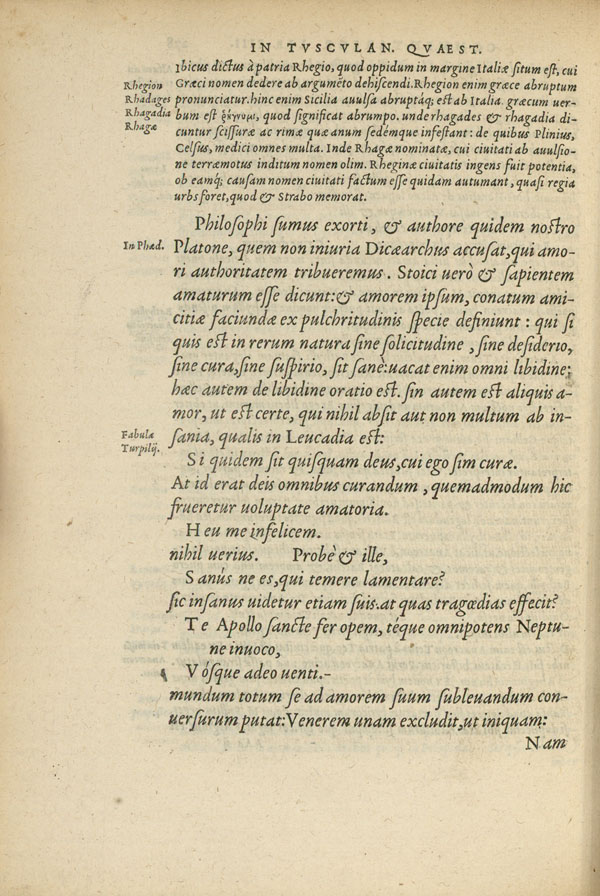 IN TVSCVLAN. QVAEST.
Ibicus dictus à patria Rhegio, quod oppidum in margine Italiæ ſitum eſt, cui
Græci nomen dedere ab argumēto dehiſcendi. Rhegion enim græce abruptum
pronunciatur. hinc enim Sicilia auulſa abruptáq; eſt ab Italia. græcum uer-
bum eſt ῥήγνυμι, quod ſignificat abrumpo. unde rhagades & rhagadia di-
cuntur ſciſſuræ ac rimæ quæ anum ſedemque infeſtant: de quibus Plinius,
Celſus, medici omnes multa. Inde Rhagæ nominatæ, cui ciuitati ab auulſio-
ne terræmotus inditum nomen olim. Rheginæ ciuitatis ingens fuit potentia,
ob eamq; cauſam nomen ciuitati factum eſſe quidam autumant, quaſi regia
urbs foret, quod & Strabo memorat.
Rhegion
Rhadages
Rhagadia
Rhagæ
Philoſophi ſumus exorti, & authore quidem noſtro
Platone, quem non iniuria Dicæarchus accuſat, qui amo-
ri authoritatem tribueremus. Stoici uerò & ſapientem
amaturum eſſe dicunt: & amorem ipſum, conatum ami-
citiæ faciundæ ex pulchritudinis ſpecie definiunt: qui ſi
quis eſt in rerum natura ſine ſolicitudine, ſine deſiderio,
ſine cura, ſine ſuſpirio, ſit ſanè: uacat enim omni libidine:
hæc autem de libidine oratio eſt. ſin autem eſt aliquis a-
mor, ut eſt certe, qui nihil abſit aut non multum ab in-
ſania, qualis in Leucadia eſt:
In Phæd.
Fabula
Turpilij.
Si quidem ſit quiſquam deus, cui ego ſim curæ.
At id erat deis omnibus curandum, quemadmodum hic
frueretur uoluptate amatoria.
Heu me infelicem.
nihil uerius. Probè & ille,
Sanús ne es, qui temere lamentare?
ſic inſanus uidetur etiam ſuis. at quas tragœdias effecit?
Te Apollo ſancte fer opem, téque omnipotens Neptu-
ne inuoco,
Vóſque adeo uenti.-
mundum totum ſe ad amorem ſuum ſubleuandum con-
uerſurum putat: Venerem unam excludit, ut iniquam:
Nam